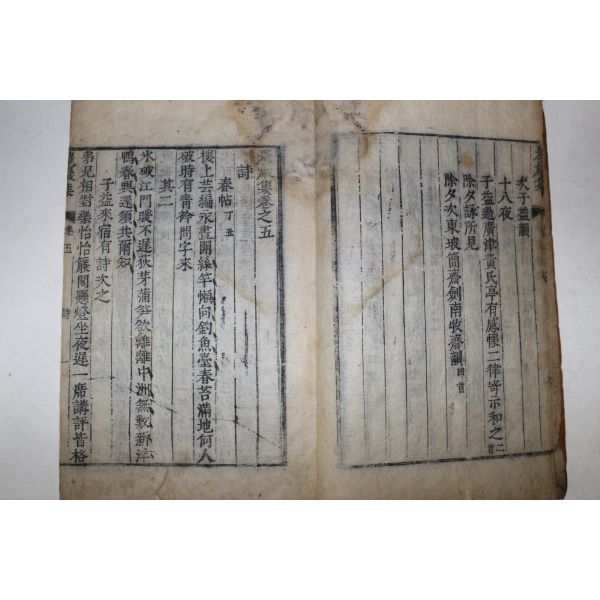 次子益韻
十八夜
子益過廣津黃氏亭有感懷二律寄示和之二首
除夕詠所見
除夕次東坡簡齋劍南牧齋韻四首
農巖集卷之五
詩
春帖丁丑
樓上芸編永晝開絲竿懶向釣魚臺春苔滿地何人
破時有靑衿問字來
其二
氷破江門暖不遲荻芽蒲笋欲離離中洲無數新浮
鴨春興還須共爾知
子益來宿有詩次之
弟兄相對樂怡怡簾閣懸燈坐夜遲一席講評皆格
卷五 詩